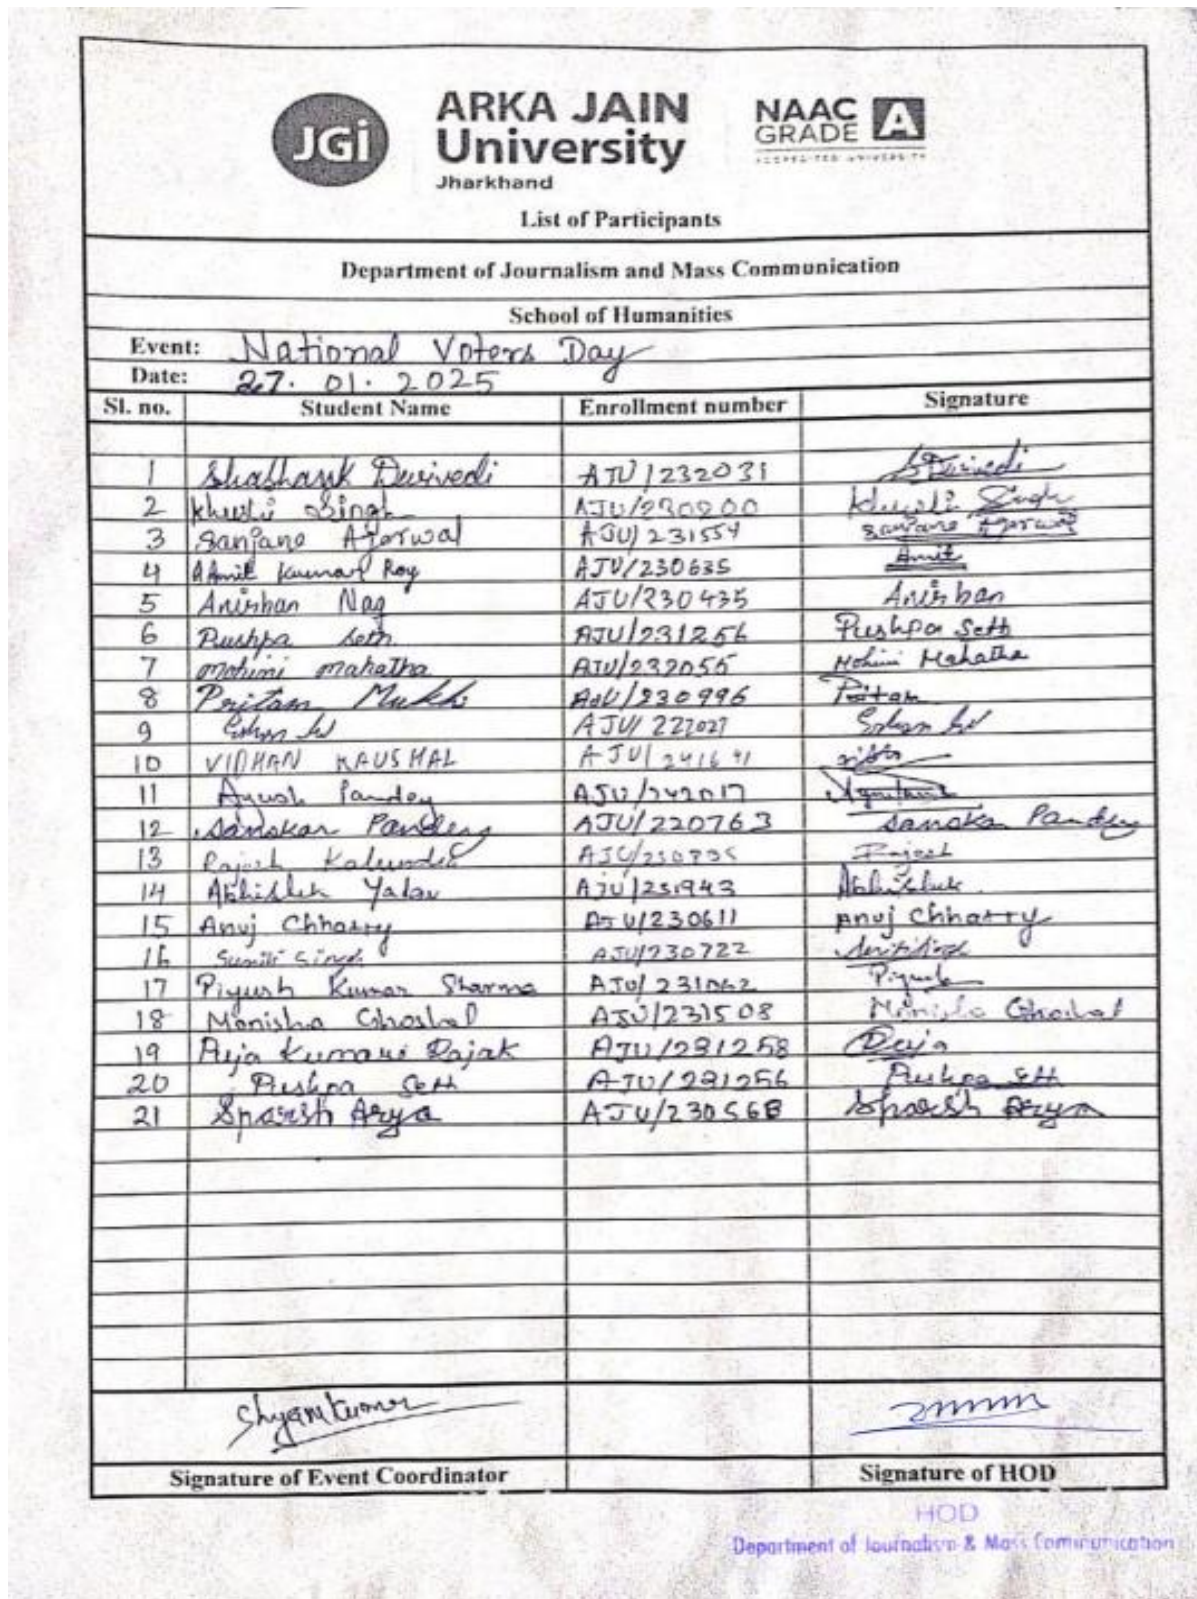 JGi
ARKA JAIN
University
Jharkhand
NAAC
GRADE A
ACCREDITED UNIVERSITY
List of Participants
Department of Journalism and Mass Communication
School of Humanities
Event: National Voters Day
Date: 27.01.2025
Sl. no. Student Name Enrollment number Signature
1 Shashank Dwivedi AJU/232031 SDwivedi
2 Khushi Singh Khushi Singh
3 Sanjana Agarwal AJU/231554 Sanjana Agarwal
4 Amit Kumar Roy AJU/230635 Amit
5 Anirban Nag AJU/230435 Anirban
6 Pushpa Seth AJU/231256 Pushpa Seth
7 Mohini Mahatha AJU/232055 Mohini Mahatha
8 Pritam Mukhi AJU/230996 Pritam
9 AJU/227027
10 VIDHAN KAUSHAL AJU/241641
11 Ayush Pandey AJU/242017
12 Sanskar Pandey AJU/220763 Sanskar Pandey
13 Rajesh Rajesh
14 Abhishek Yadav AJU/231943 Abhishek
15 Anuj Chhatry AJU/230611 Anuj Chhatry
16 Singh AJU/230722
17 Piyush Kumar Sharma AJU/231042 Piyush
18 Monisha Ghoshal AJU/231508 Monisha Ghoshal
19 Puja Kumari Rajak AJU/231258 Puja
20 Pushpa Seth AJU/231256 Pushpa Seth
21 Sparsh Arya AJU/230568 Sparsh Arya
Shyam Kumar
Signature of Event Coordinator Signature of HOD
HOD
Department of Journalism & Mass Communication